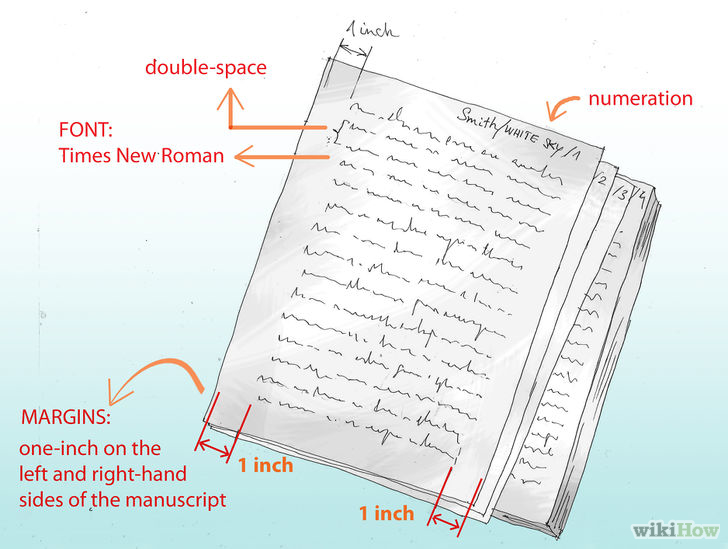 1 inch
double-space
Smith/WHITE SKY/1
numeration
FONT:
Times New Roman
/2
/3
/4
MARGINS:
one-inch on the
left and right-hand
sides of the manuscript
1 inch
1 inch
wikiHow